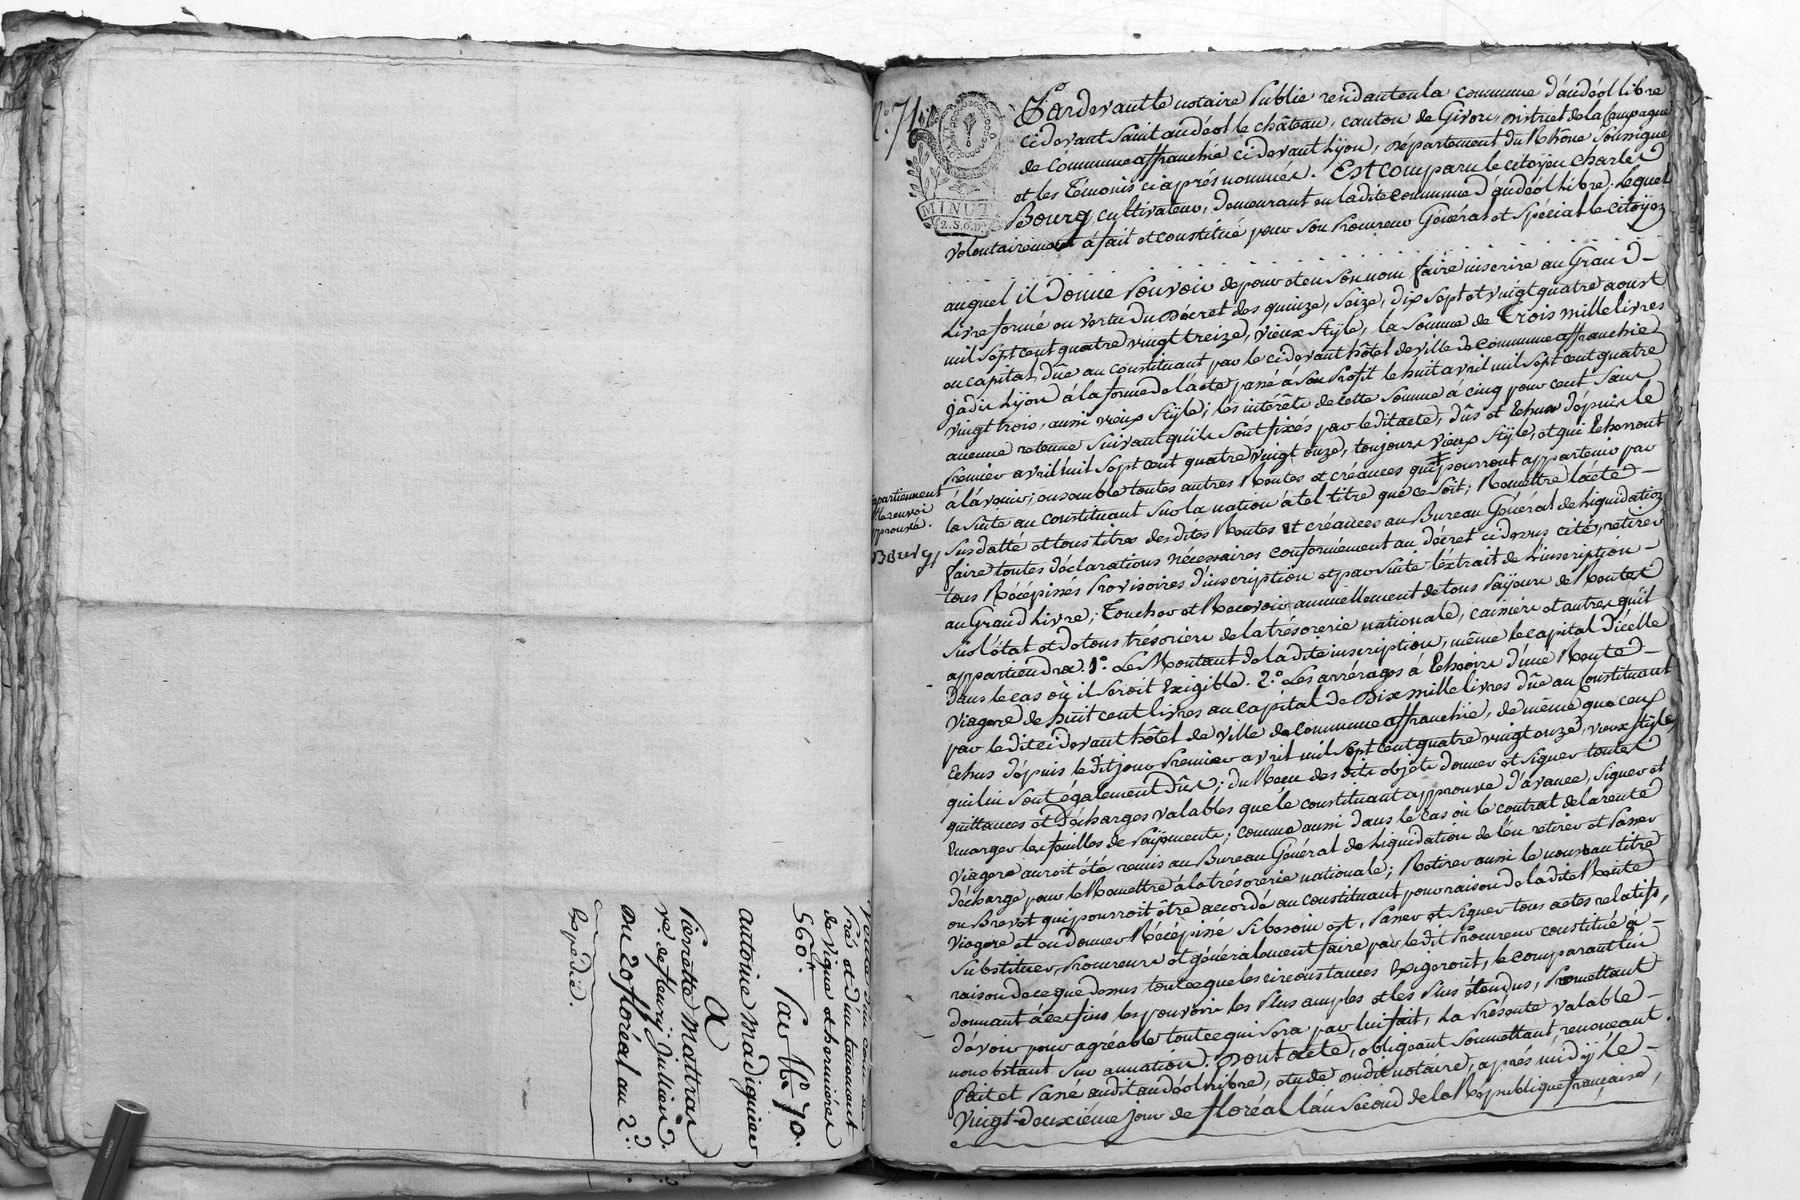 Vente d'un coin de
Pré et d'un tenement
de vigne et hermière
560. Par №. 70.
antoine Madiguier
A
Pierrette Mattrat
ve. de fleury Jullien.
Du 20 floréal an 2d.
Expédié.
N.° 71.
MINUT
2.S.6.D
Pardevant le notaire Public residant en la commune d'andéol libre
cidevant Saint andéol le château, canton de Givors, District de la Campagne
de Commune affranchie cidevant Lyon, Département du Rhône Soussigné
et les Témoins ciaprés nommés. Est comparu le citoyen Charles
Bourg cultivateur, demeurant en ladite commune d'andéol Libre. Lequel
volontairement à fait et constitué pour son Procureur Général et Spécial le citoyen
auquel il Donne Pouvoir de pour et en son nom faire inscrire au Grand
Livre formé en vertu du Décret des quinze, seize, dix sept et vingt quatre aoust
mil sept cent quatre vingt treize, vieux Style, la Somme de Trois mille livres
en capital, dûe au constituant par le cidevant hôtel de ville de Commune affranchie
jadis Lyon à la forme de l'acte passé à son Profit le huit avril mil sept cent quatre
vingt trois, aussi vieux Style; les intérêts de cette Somme à cinq pour cent sans
aucune retenue suivant qu'ils sont fixés par ledit acte, dûs et Echus depuis le
Premier avril mil sept cent quatre vingt onze, toujours vieux Style, et qui Echerront
à l'avenir; ensemble toutes autres Rentes et créances qui pourront appartenir par
la suite au constituant sur la nation à tel titre que ce soit; Remettre l'acte
susdatté et tous titres desdites Rentes et créances au Bureau Général de Liquidation
faire toutes déclarations nécessaires conformément au décret cidessus cité, retirer
tous Récépissés Provisoires d'inscription et par suite l'éxtrait de l'inscription
au Grand Livre; Toucher et Recevoir annuellement de tous Payeurs de Rentes
sur l'état et de tous trésoriers de la trésorerie nationale, caissiers et autres qu'il
appartiendra. 1.° Le Montant de ladite inscription, même le capital d'icelle
Dans le cas où il seroit Exigible. 2.° Les arrérages à Echeoir d'une Rente
Viagere de huit cent livres au capital de Dix mille livres dûe au Constituant
par ledit cidevant hôtel de ville de Commune affranchie, de même que ceux
Echus depuis ledit jour Premier avril mil sept cent quatre vingt onze, vieux style,
qui lui sont également dûs; du Reçu desdits objets donner et signer toutes
quittances et décharges valables que le constituant approuve d'avance, signer et
Emarger les feuilles de Paÿements; comme aussi dans le cas où le contrat de la rente
Viagere auroit été remis au Bureau Général de Liquidation de l'en retirer et Passer
décharge pour le Remettre à la trésorerie nationale; Retirer aussi le nouveau titre
ou Brevet qui pourroit être accordé au constituant pour raison de ladite Rente
Viagere et en donner Récépissé si besoin est, Passer et signer tous actes relatifs,
Substituer, Procureurs et généralement faire par ledit Procureur constitué à
raison de ce que dessus tout ce que les circonstances Exigeront, le comparant lui
donnant à ces fins les pouvoirs les Plus amples et les Plus étendus, Promettant
d'avoir pour agréable tout ce qui sera par lui fait, la Présente valable
nonobstant sur annation. Dont acte, obligeant soumettant, renonceant.
Fait et Passé audit andéol Libre, etude dudit notaire, aprés midÿ le
Vingt-deuxième jour de floréal l'an second de la République française,
appartiennent
le renvoi
approuvé.
Bourg